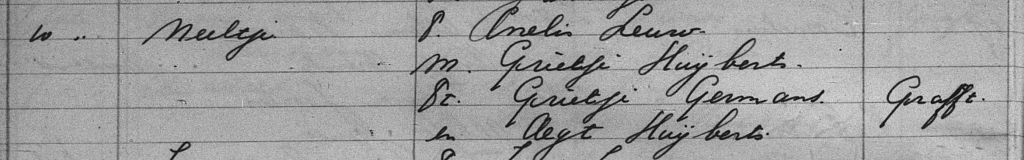 10 " Neeltje P. Cnelis Leeuw.
M. Grietje Huijberts.
Pt. Grietje Germans. Grafft.
en Aegt Huijberts.